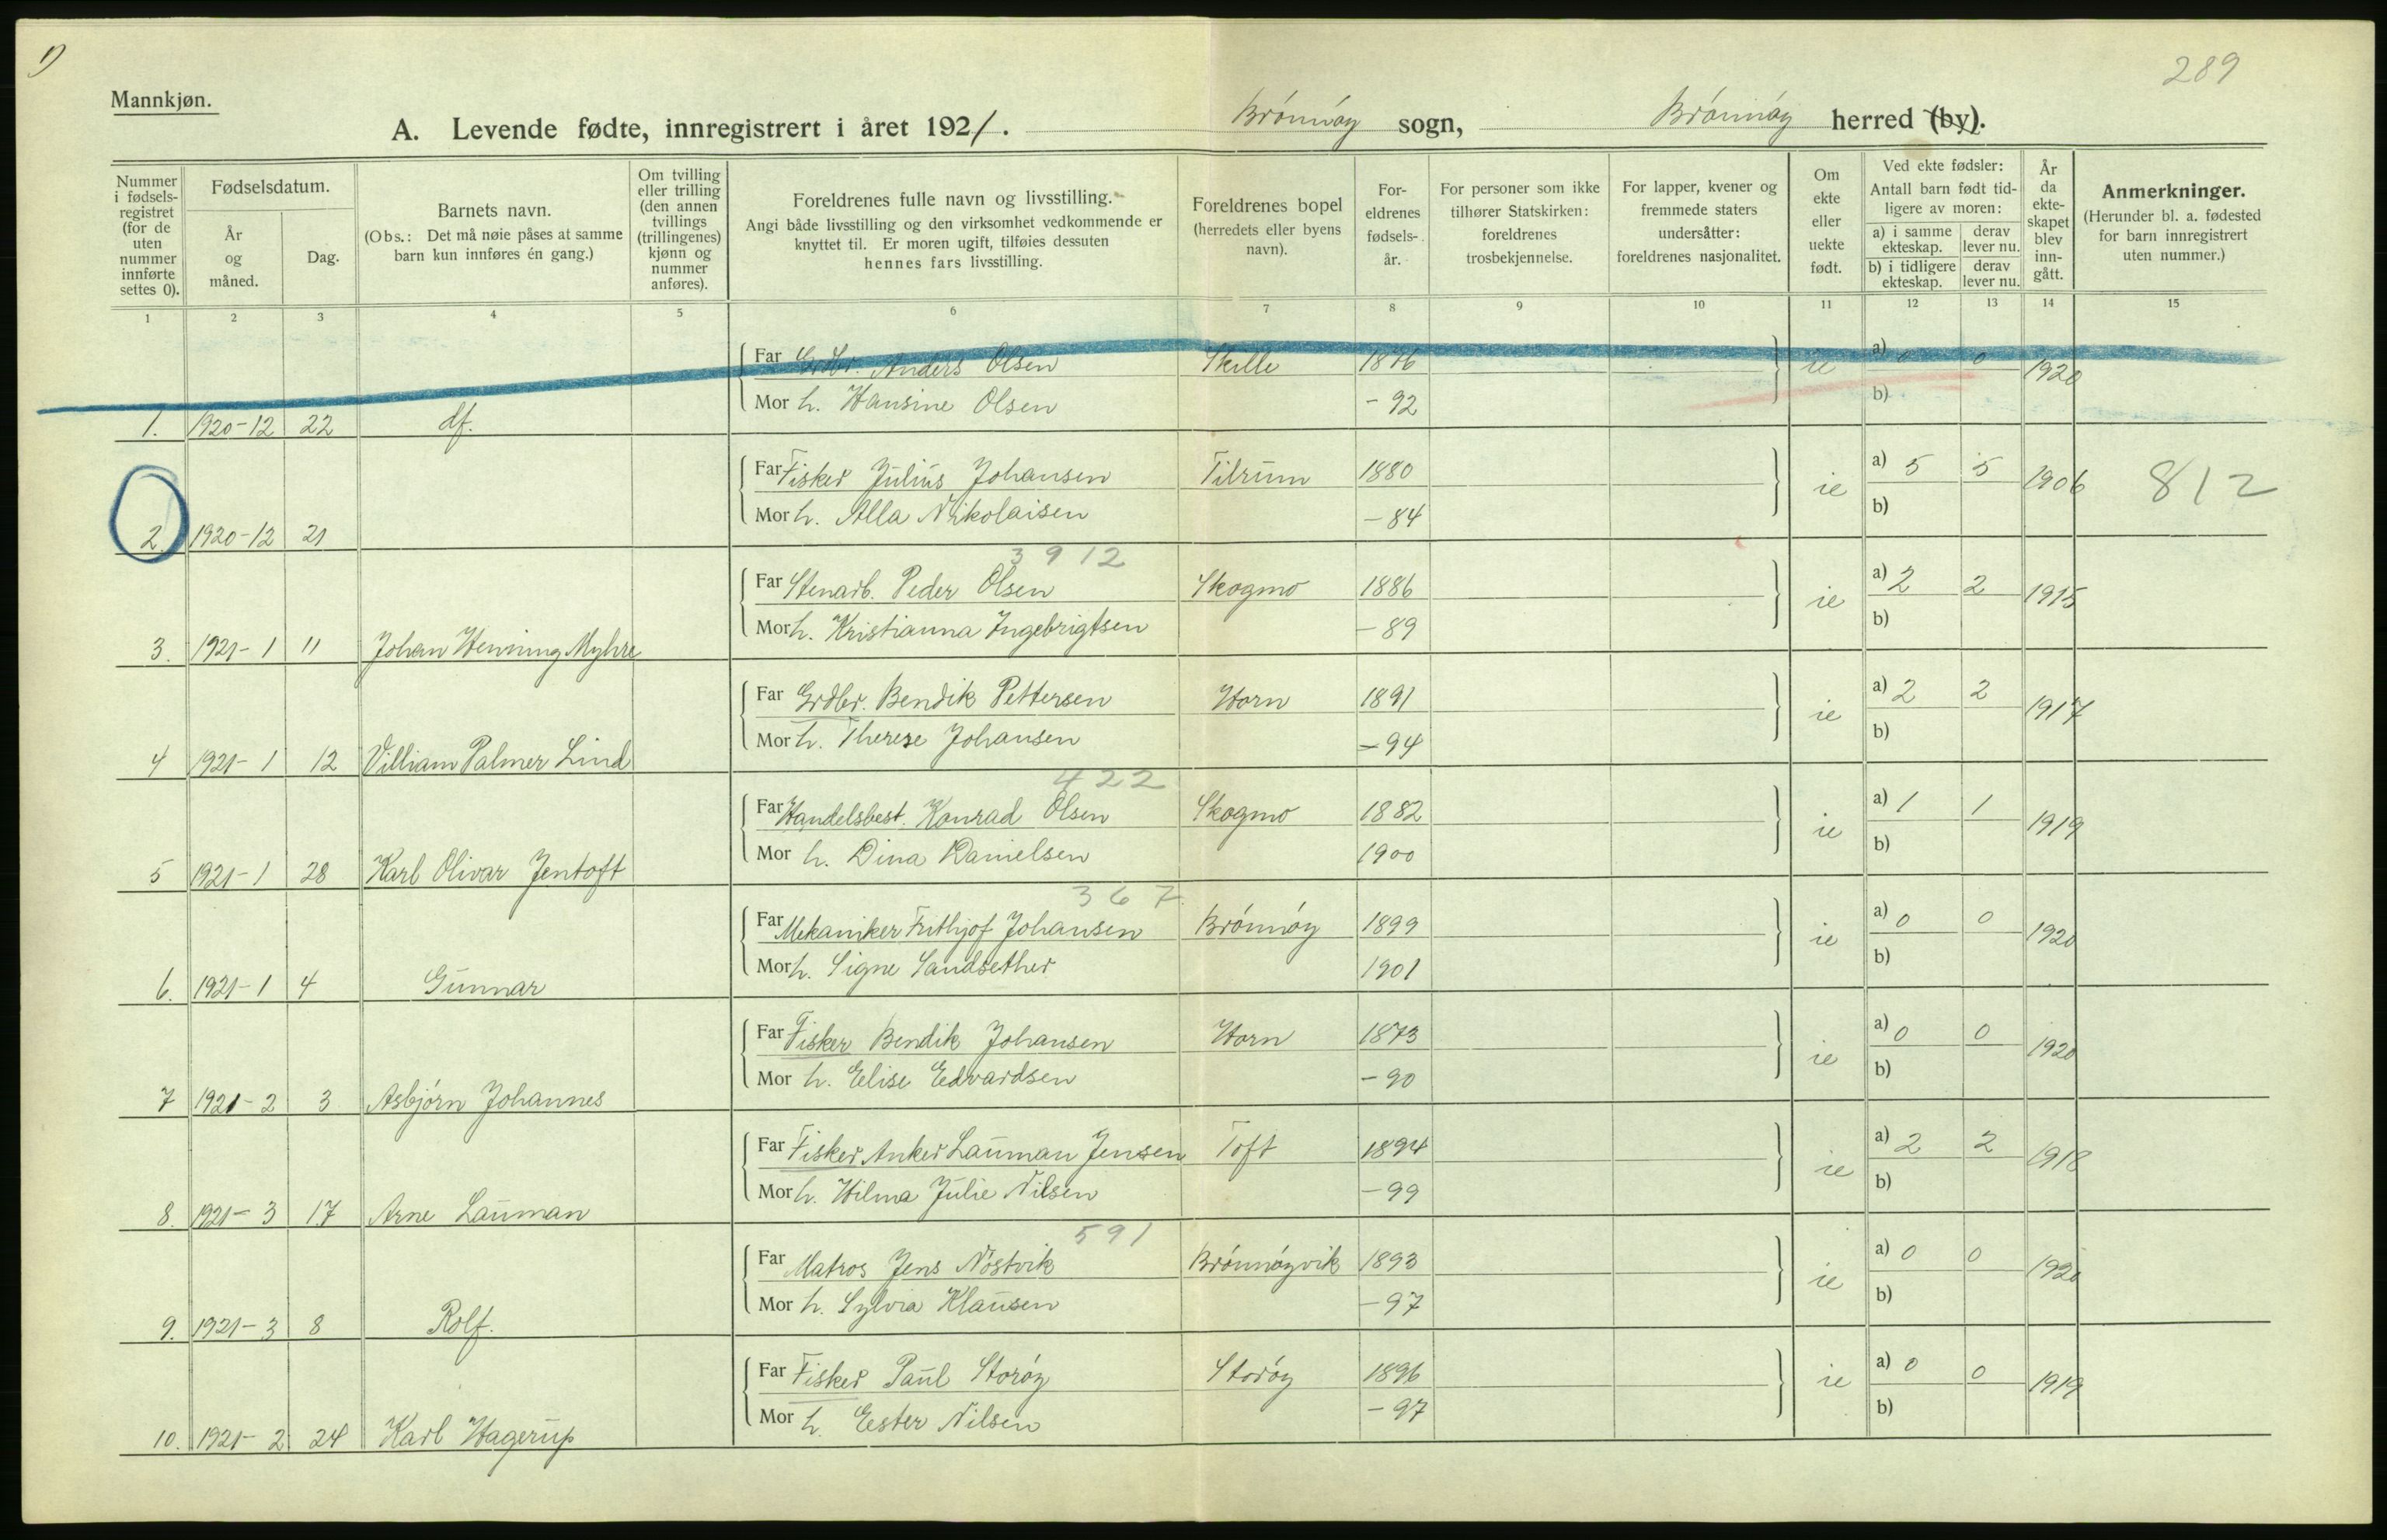 1)
289
Mannkjøn.
A. Levende fødte, innregistrert i året 1921. Brønnøy sogn, Brønnøy herred (by).
Nummer i fødsels-registret (for de uten nummer innførte settes 0).
Fødselsdatum.
År og måned.
Dag.
Barnets navn.
(Obs.: Det må nøie påses at samme barn kun innføres én gang.)
Om tvilling eller trilling (den annen tvillings (trillingenes) kjønn og nummer anføres).
Foreldrenes fulle navn og livsstilling.
Angi både livsstilling og den virksomhet vedkommende er knyttet til. Er moren ugift, tilføies dessuten hennes fars livsstilling.
Foreldrenes bopel (herredets eller byens navn).
For-eldrenes fødsels-år.
For personer som ikke tilhører Statskirken: foreldrenes trosbekjennelse.
For lapper, kvener og fremmede staters undersåtter: foreldrenes nasjonalitet.
Om ekte eller uekte født.
Ved ekte fødsler:
Antall barn født tid-ligere av moren:
a) i samme ekteskap. derav lever nu.
b) i tidligere ekteskap. derav lever nu.
År da ekte-skapet blev inn-gått.
Anmerkninger.
(Herunder bl. a. fødested for barn innregistrert uten nummer.)
1 2 3 4 5 6 7 8 9 10 11 12 13 14 15
Far Grdbr. Anders Olsen Skille 1876 ie a) 0 0 1920
Mor h. Hansine Olsen -92 b)
1. 1920-12 22 df.
Far Fisker Julius Johansen Tilrum 1880 ie a) 5 5 1906 812
Mor h. Alla Nikolaisen -84 b)
2. 1920-12 21
3912
Far Stenarb. Peder Olsen Skogmo 1886 ie a) 2 2 1915
Mor h. Kristianna Ingebrigtsen -89 b)
3. 1921-1 11 Johan Henning Myhre
Far Grdbr. Bendik Pettersen Horn 1891 ie a) 2 2 1917
Mor h. Therese Johansen -94 b)
4 1921-1 12 Villiam Palmer Lind
422
Far Handelsbest. Konrad Olsen Skogmo 1882 ie a) 1 1 1919
Mor h. Dina Danielsen 1900 b)
5 1921-1 28 Karl Olivar Jentoft
367
Far Mekaniker Frithjof Johansen Brønnøy 1899 ie a) 0 0 1920
Mor h. Signe Sandsether 1901 b)
6. 1921-1 4 Gunnar
Far Fisker Bendik Johansen Horn 1873 ie a) 0 0 1920
Mor h. Elise Edvardsen -90 b)
7 1921-2 3 Asbjørn Johannes
Far Fisker Anker Lauman Jensen Toft 1894 ie a) 2 2 1918
Mor h. Hilma Julie Nilsen -99 b)
8. 1921-3 17 Arne Lauman
591
Far Matros Jens Nøstvik Brønnøyvik 1893 ie a) 0 0 1920
Mor h. Sylvia Klausen -97 b)
9. 1921-3 8 Rolf.
Far Fisker Paul Storøy Storøy 1896 ie a) 0 0 1919
Mor h. Ester Nilsen -97 b)
10. 1921-2 24 Karl Hagerup